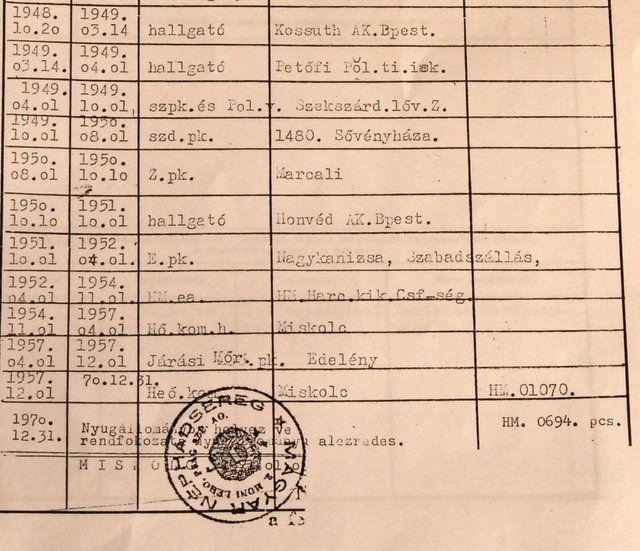 1948. 1949.
lo.2o 03.14 hallgató Kossuth AK.Bpest.
1949. 1949.
o3.14. o4.ol hallgató Petőfi Pol.ti.isk.
1949. 1949.
o4.ol lo.ol, szpk.és Pol.v. Szekszárd.löv.Z.
1949. 195o.
lo.ol o8.ol szd.pk. 1480. Sővényháza.
195o. 195o.
o8.ol lo.lo Z.pk. Marcali
195o. 1951.
lo.lo lo.ol hallgató Honvéd AK.Bpest.
1951. 1952.
lo.ol o4.ol. E.pk. Nagykanizsa, Szabadszállás,
1952. 1954.
o4.ol 11.ol HM.ea. HM.Harc.kik.Csf-ség.
1954. 1957.
11.ol o4.ol Hő.kom.h. Miskolc
1957. 1957.
o4.ol 12.ol Járási Kőr.pk. Edelény
1957. 7o.12.31.
12.ol Heő. Miskolc HM.O1070.
197o. HM. 0694. pcs.
12.31. Nyugállomány
rendfokozata alezredes.
NÉPHADSEREG ★ MAGYAR